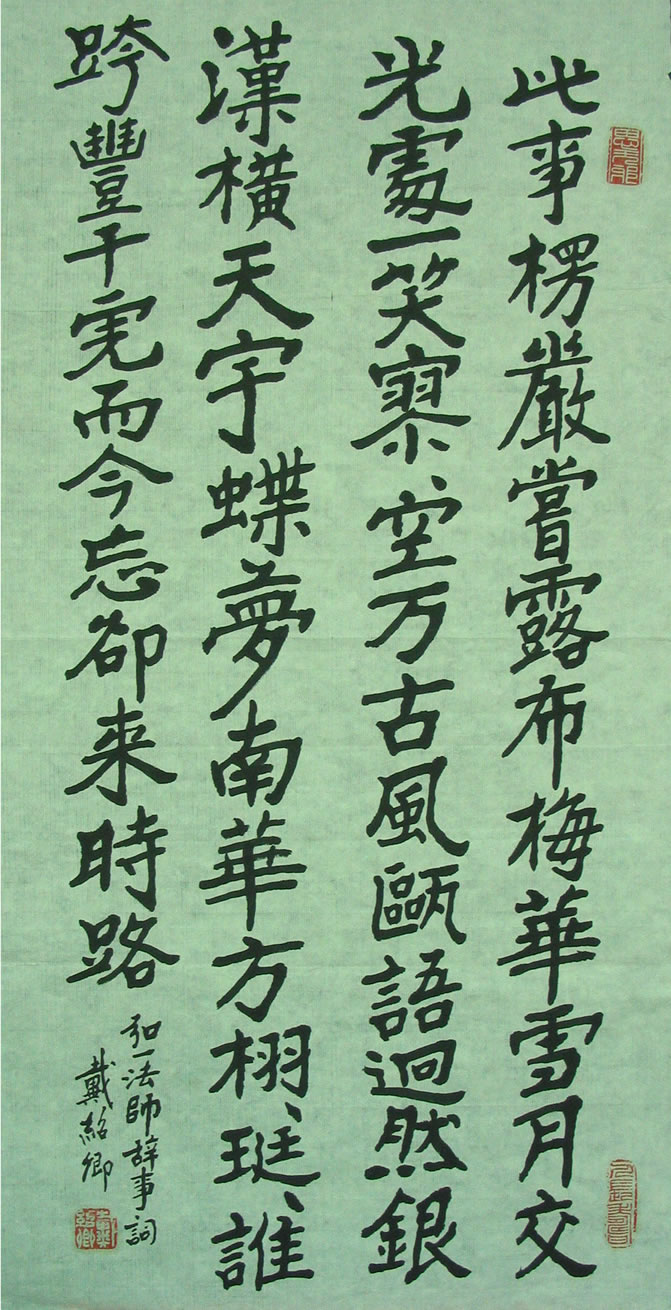 此事楞嚴嘗露布梅華雪月交
光處一笑寥〻空万古風甌語迥然銀
漢橫天宇蝶夢南華方栩〻珽〻誰
跨豐干虎而今忘卻来時路
弘一法師辞事詞
戴紹卿
思無邪